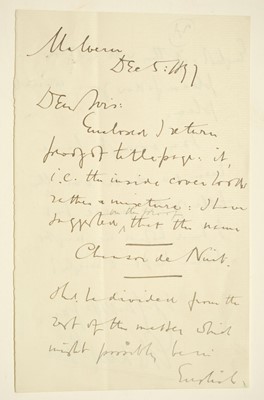 Malvern
Dec 5: 1897
Dear Sirs:
Enclosed I return
proof of title page: it,
i.e. the inside cover looks
rather a mixture: I have
on the proof
suggested, that the name
Chanson de Nuit.
shd. be divided from the
rest of the matter which
might possibly be in
English.